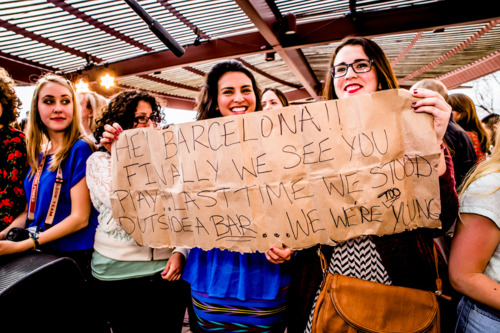 HE! BARCELONA!!
FINALLY WE SEE YOU
PLAY. LAST TIME WE STOOD
OUTSIDE A BAR... WE WERE TOO YUNG